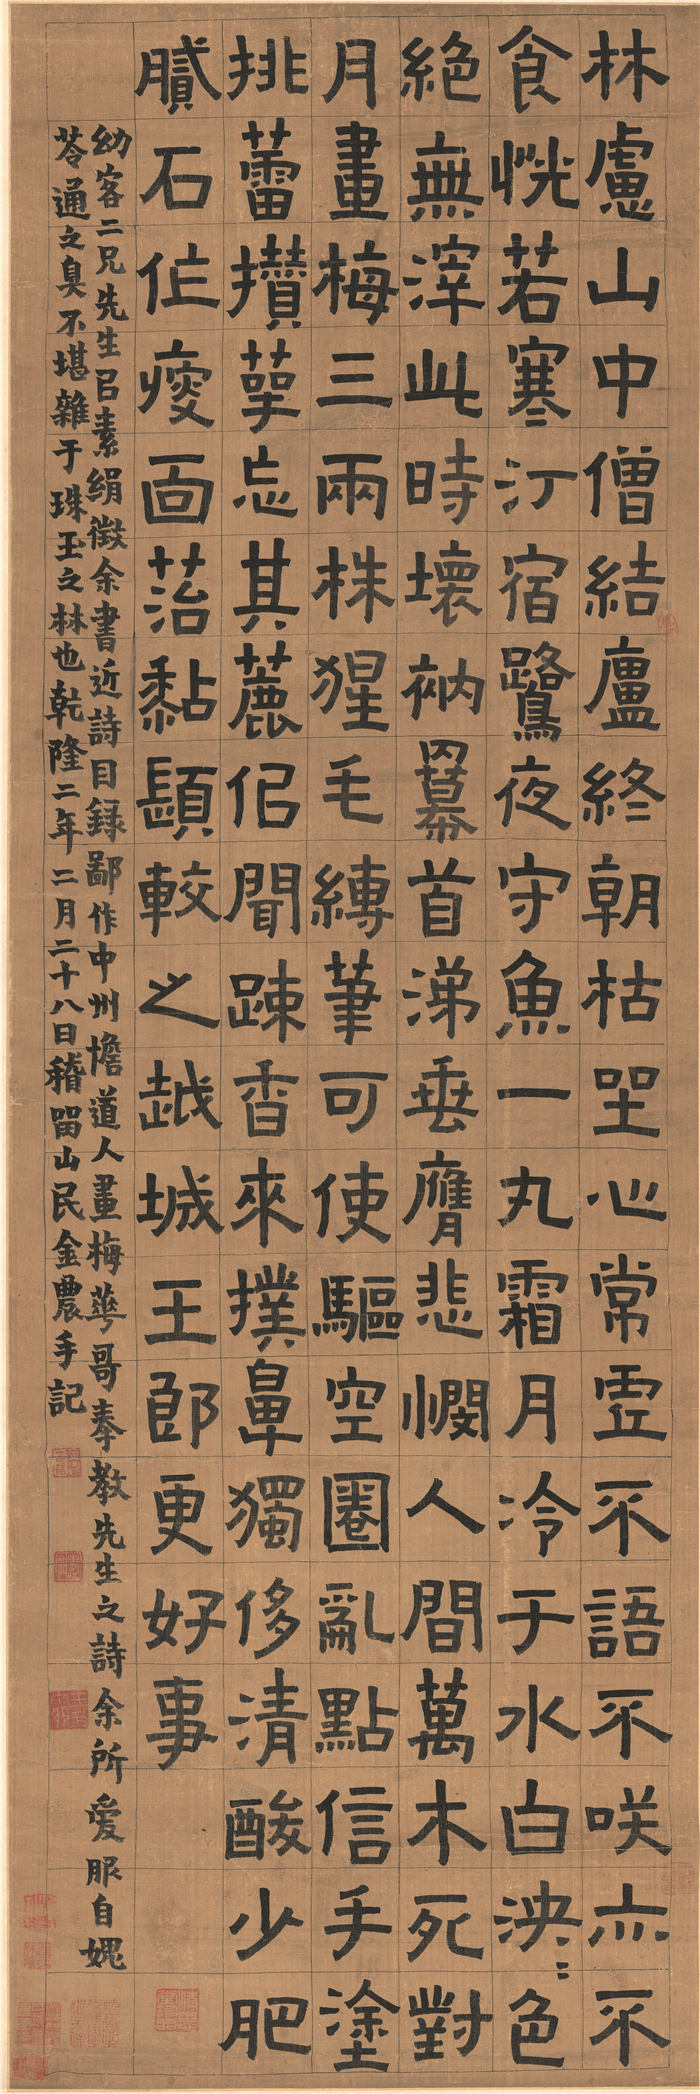 林慮山中僧結廬終朝枯坐心常霊不語不咲亦不
食恍若寒汀宿鷺夜守魚一丸霜月冷于水白泱〻色
絕無滓此時壞衲冪首涕垂膺悲憫人間萬木死對
月畫梅三兩株猩毛縛筆可使驅空圈亂點信手塗
挑蕾攢萼忘其麤佀聞踈香來撲鼻獨侈清酸少肥
膩石作瘦面苔黏顋較之越城王郎更好事
幼客二兄先生㠯素絹徵余書近詩目録鄙作中州憺道人畫梅華哥奉教先生之詩余所愛服自媿
苓通之臭不堪雜于珠玉之林也乾隆二年二月二十八日稽留山民金農手記